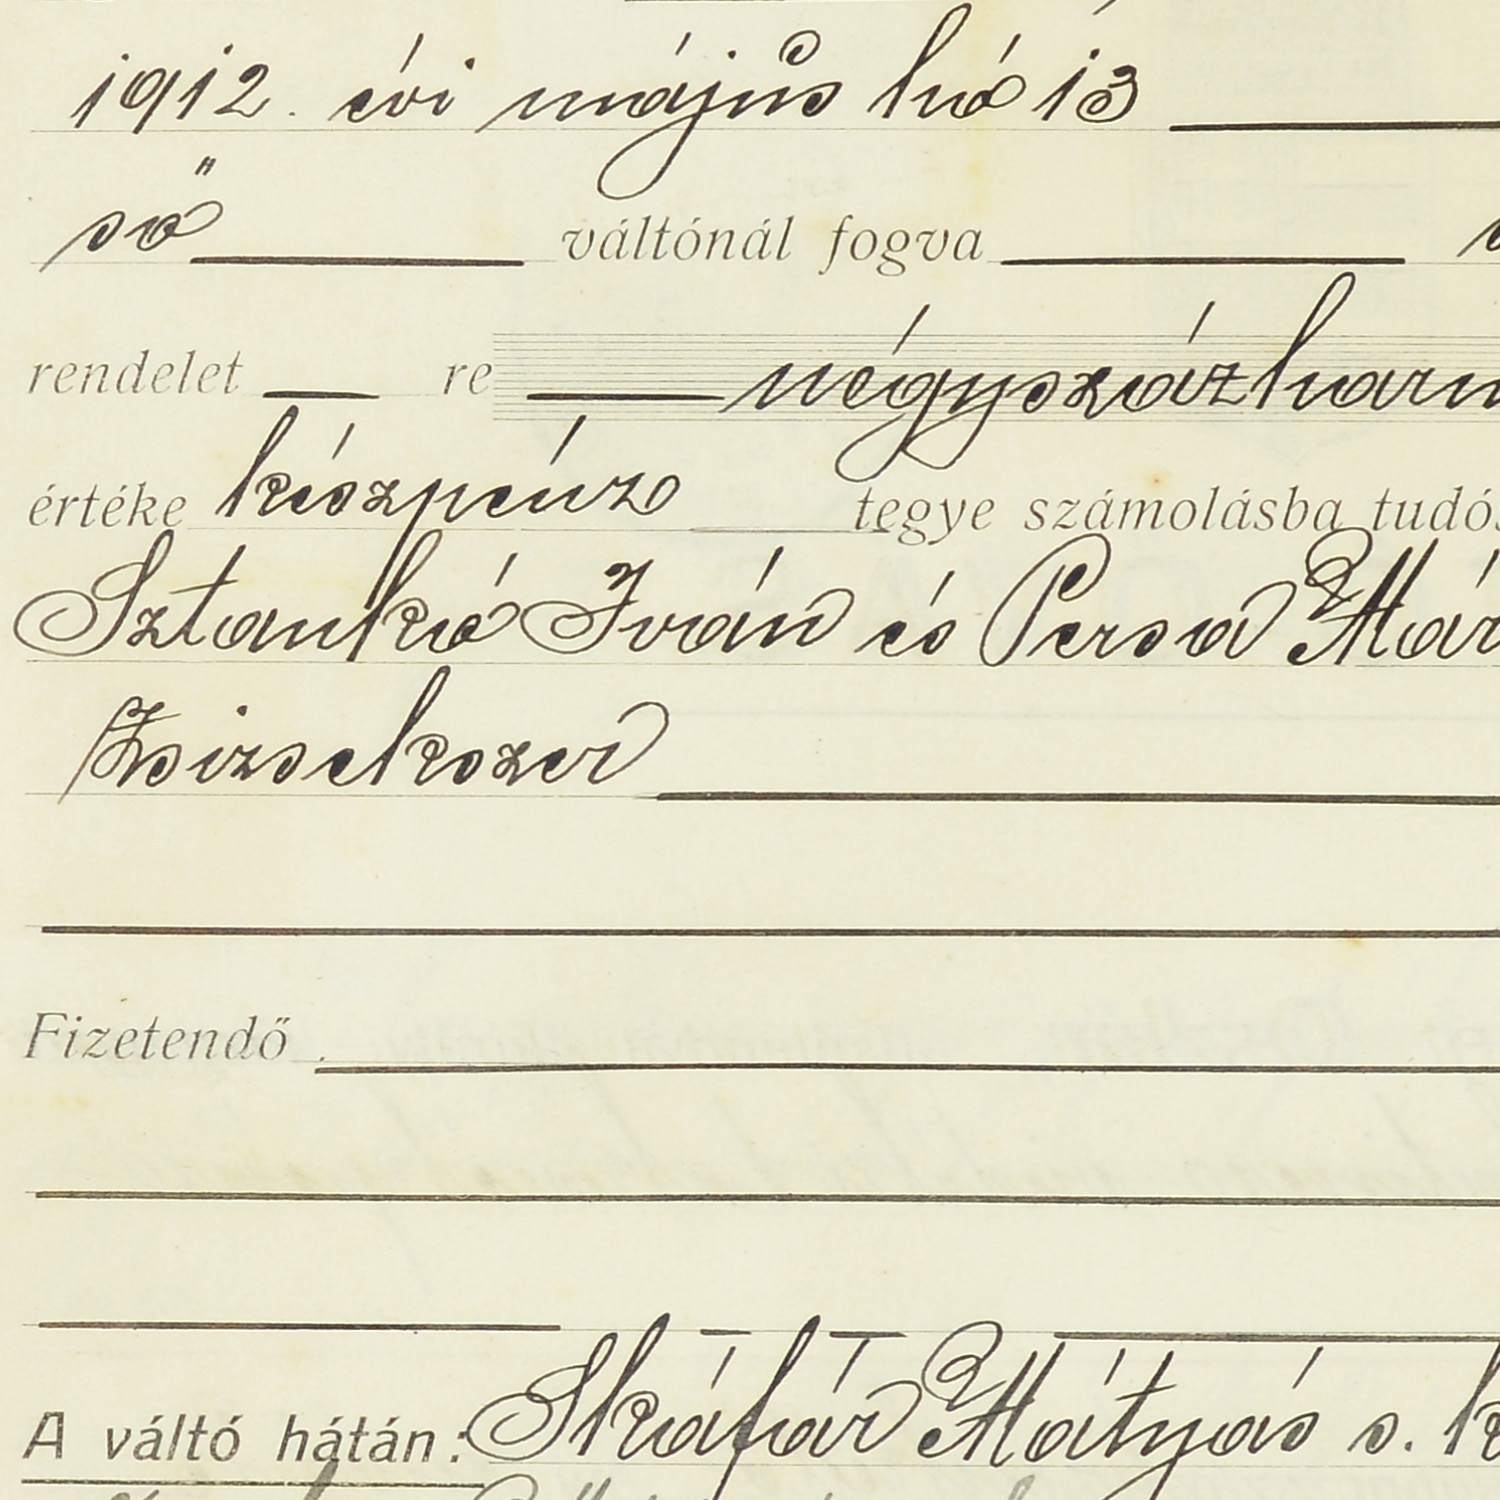 1912. évi május hó 13
ső váltónál fogva
rendelet re négyszázharm
értéke készpénz tegye számolásba tudós
Sztankó Iván és Persa Már
Zsizsekszer
Fizetendő
A váltó hátán: Skáfár Mátyás s. k